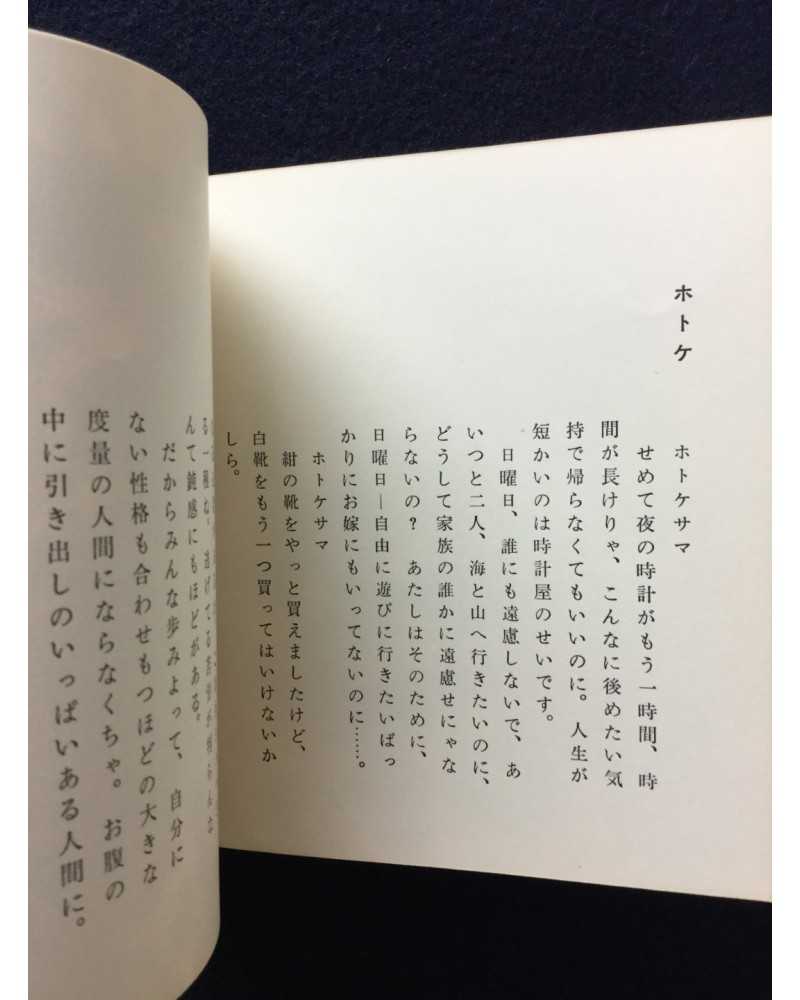 ホトケ
ホトケサマ
せめて夜の時計がもう一時間、時
間が長けりゃ、こんなに後めたい気
持で帰らなくてもいいのに。人生が
短かいのは時計屋のせいです。
日曜日、誰にも遠慮しないで、あ
いつと二人、海と山へ行きたいのに、
どうして家族の誰かに遠慮せにゃな
らないの？　あたしはそのために、
日曜日―自由に遊びに行きたいばっ
かりにお嫁にもいってないのに……。
ホトケサマ
紺の靴をやっと買えましたけど、
白靴をもう一つ買ってはいけないか
しら。
んて鈍感にもほどがある。
だからみんな歩みよって、自分に
ない性格も合わせもつほどの大きな
度量の人間にならなくちゃ。お腹の
中に引き出しのいっぱいある人間に。